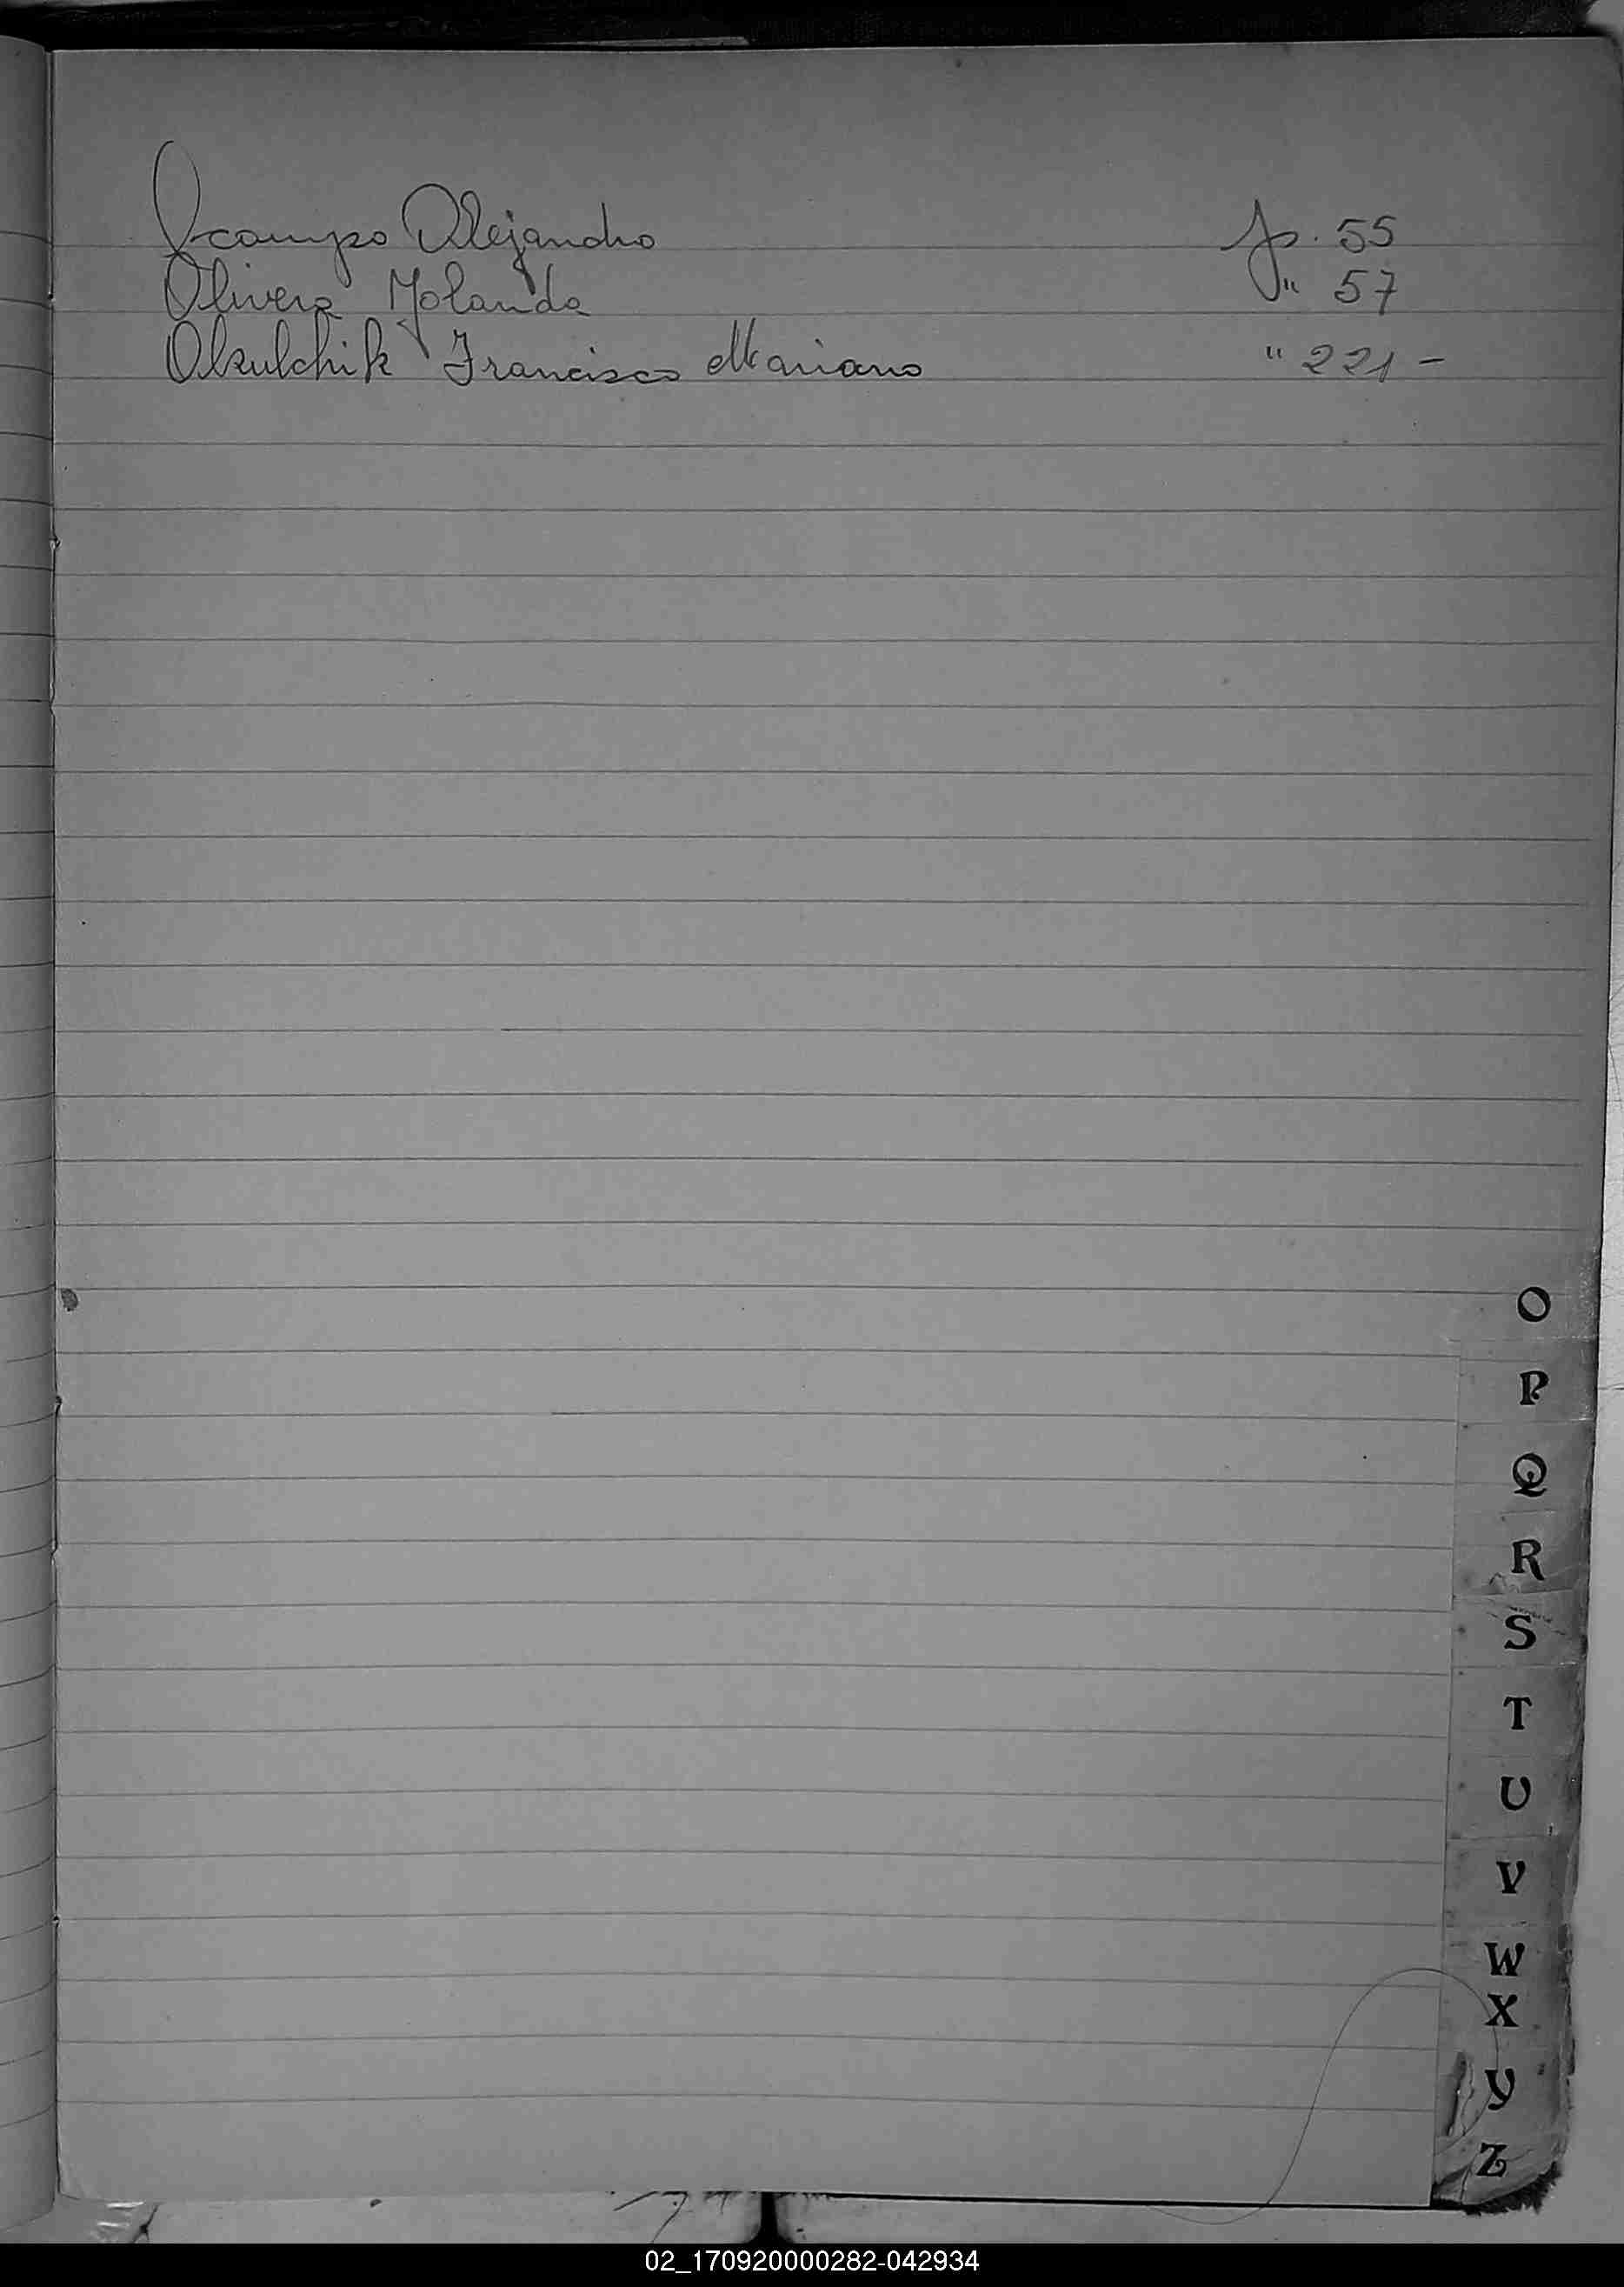 Ocampo Alejandro p. 55
Olivera Yolanda " 57
Okulchik Francisco Mariano " 221 -
O
P
Q
R
S
T
U
V
W
X
Y
Z
02_170920000282-042934